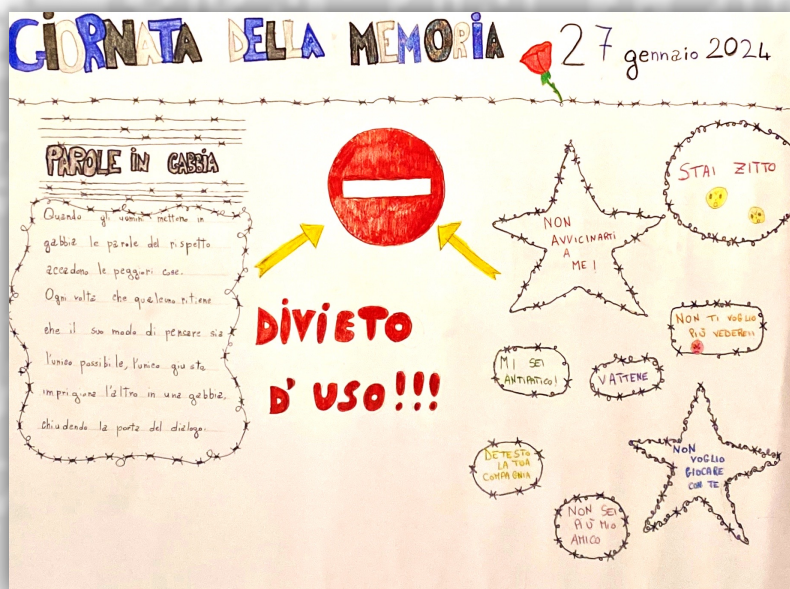 GIORNATA DELLA MEMORIA 27 gennaio 2024
PAROLE IN GABBIA
Quando gli uomini mettono in
gabbia le parole del rispetto
accadono le peggiori cose.
Ogni volta che qualcuno ritiene
che il suo modo di pensare sia
l'unico possibile, l'unico giusto
imprigiona l'altro in una gabbia,
chiudendo la porta del dialogo.
DIVIETO
D'USO!!!
NON
AVVICINARTI
A
ME!
STAI ZITTO
NON TI VOGLIO
PIÙ VEDERE!!
MI SEI
ANTIPATICO!
VATTENE
DETESTO
LA TUA
COMPAGNIA
NON SEI
PIÙ MIO
AMICO
NON
VOGLIO
GIOCARE
CON TE